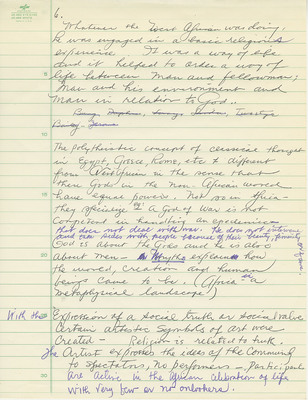 6.
Whatever the West African was doing,
he was engaged in a basic religious
experience. It was a way of life
and it helped to order a way of
life between Man and fellowman;
Man and his environment and
Man in relation to God.
The Polytheistic concept of classical thought
in Egypt, Greece, Rome, etc is different
from West African in the sense that
these Gods in the Non-African world
have equal powers. Not so in Africa—
they specialize. A God of War is not
competent in handling an experience
that does not deal with war. He does not intervene
and can sides with people because of their beauty,
God is about the Gods and he is also
about Man — Myths explain how
the world, creation and human
beings came to be. (Africa
metaphysical landscape)
With the Expression of a social truth or social value
Certain artistic Symbols of art were
Created — Religion is related to truth.
The Artist expresses the ideas of the Community
to spectators, No performers — Participants
are active in the African celebration of life
with very few or no onlookers.